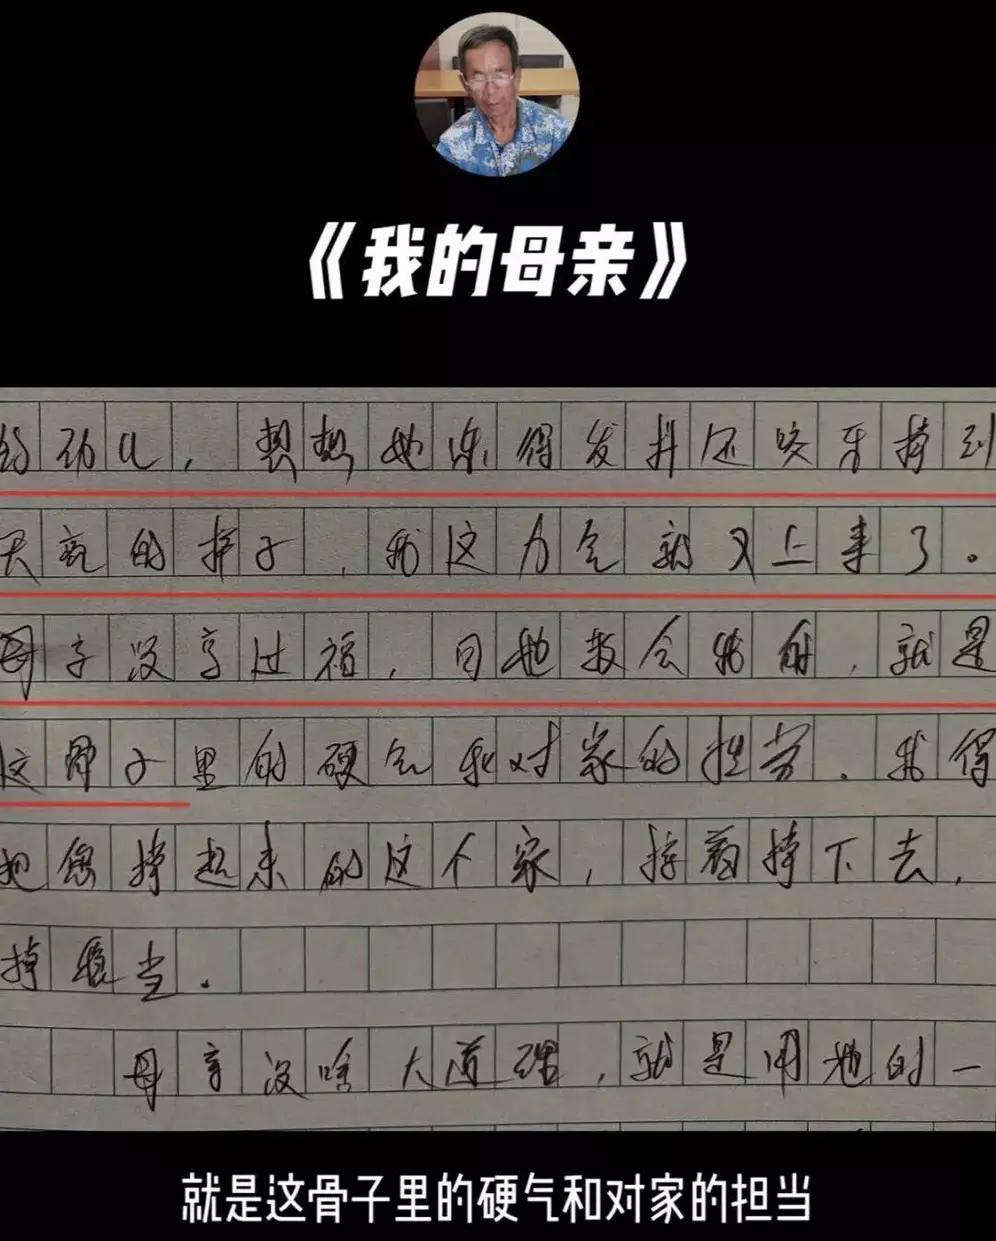 《我的母亲》
劲儿，想想她冻得发抖还咬牙撑到
天亮的样子，我这力气就又上来了。
母亲没享过福，可她教会我的，就是
这骨子里的硬气和对家的担当。我得
把您撑起来的这个家，接着撑下去，
撑稳当。
母亲没啥大道理，就是用她的一
就是这骨子里的硬气和对家的担当